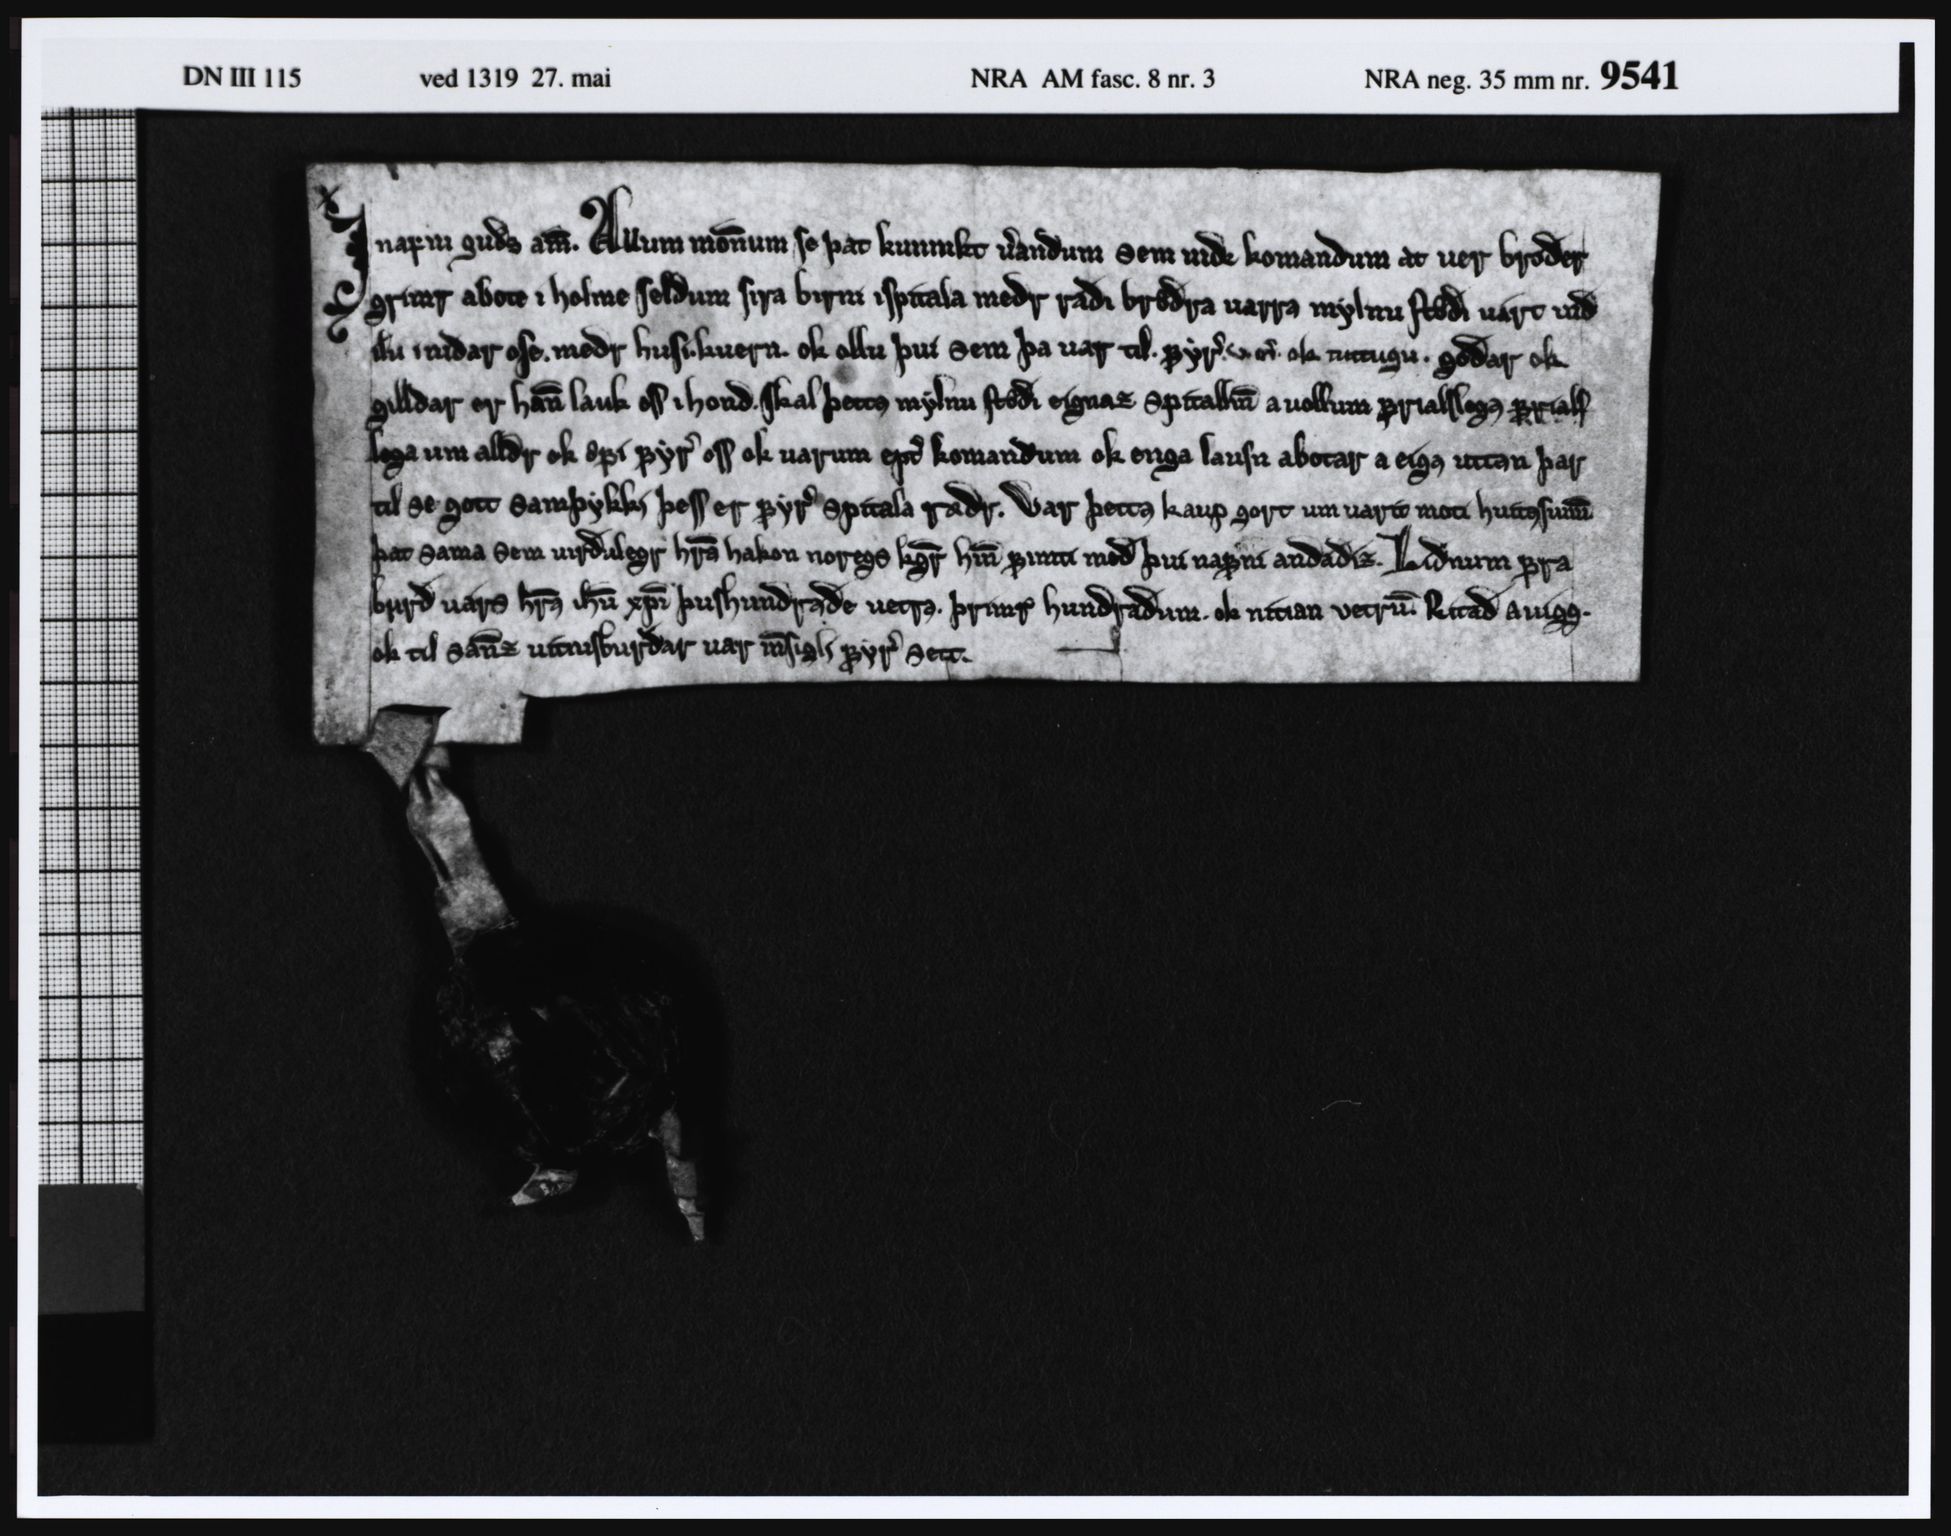 DN III 115 ved 1319 27. mai NRA AM fasc. 8 nr. 3 NRA neg. 35 mm nr. 9541
J nafni guds am̅. Allum mo̅num se þat kunnikt v͛andum sem nide komandum at uer brøder
grimr abote i holme seldum sira birni i spitala medr radi brødra uarra mylnu stødi uart uid
ilu i nidar ose. medr husi. kuern. ok ollu þui sem þa uar til. fyr͛ ok nittugu. godar ok
gilldar er ha̅n lauk oss i hond. Skal þetta mylnu stødi eignaz spitallin̅ a uollum frialslega frials
lega um alldr ok øfi fyr͛ oss ok uarum eft͛ komandum ok enga lausn abotar a eiga uttan þar
til se gott samþykki þess er fyr͛ spitala rædr. Var þetta kaup gort um uarit moti huitasunnu̅
þat sama sem uirdulegr hr̅a hakon noregs kgr̅ hin̅ fimti med þui nafni andadiz. Lidnum fra
burd uars hr̅a ih̅u xp̅i þushundrade uetra. þrimr͛ hundradum. ok nitian vetru̅. Ritad a uigg.
ok til san̅z uitnisburdar uar in̅sigli fyr͛ sett.